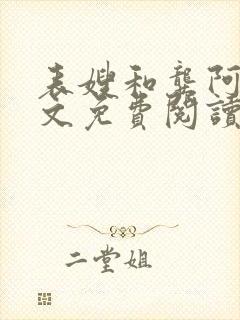 表嫂和龔阿
文免費閱讀
二堂姐